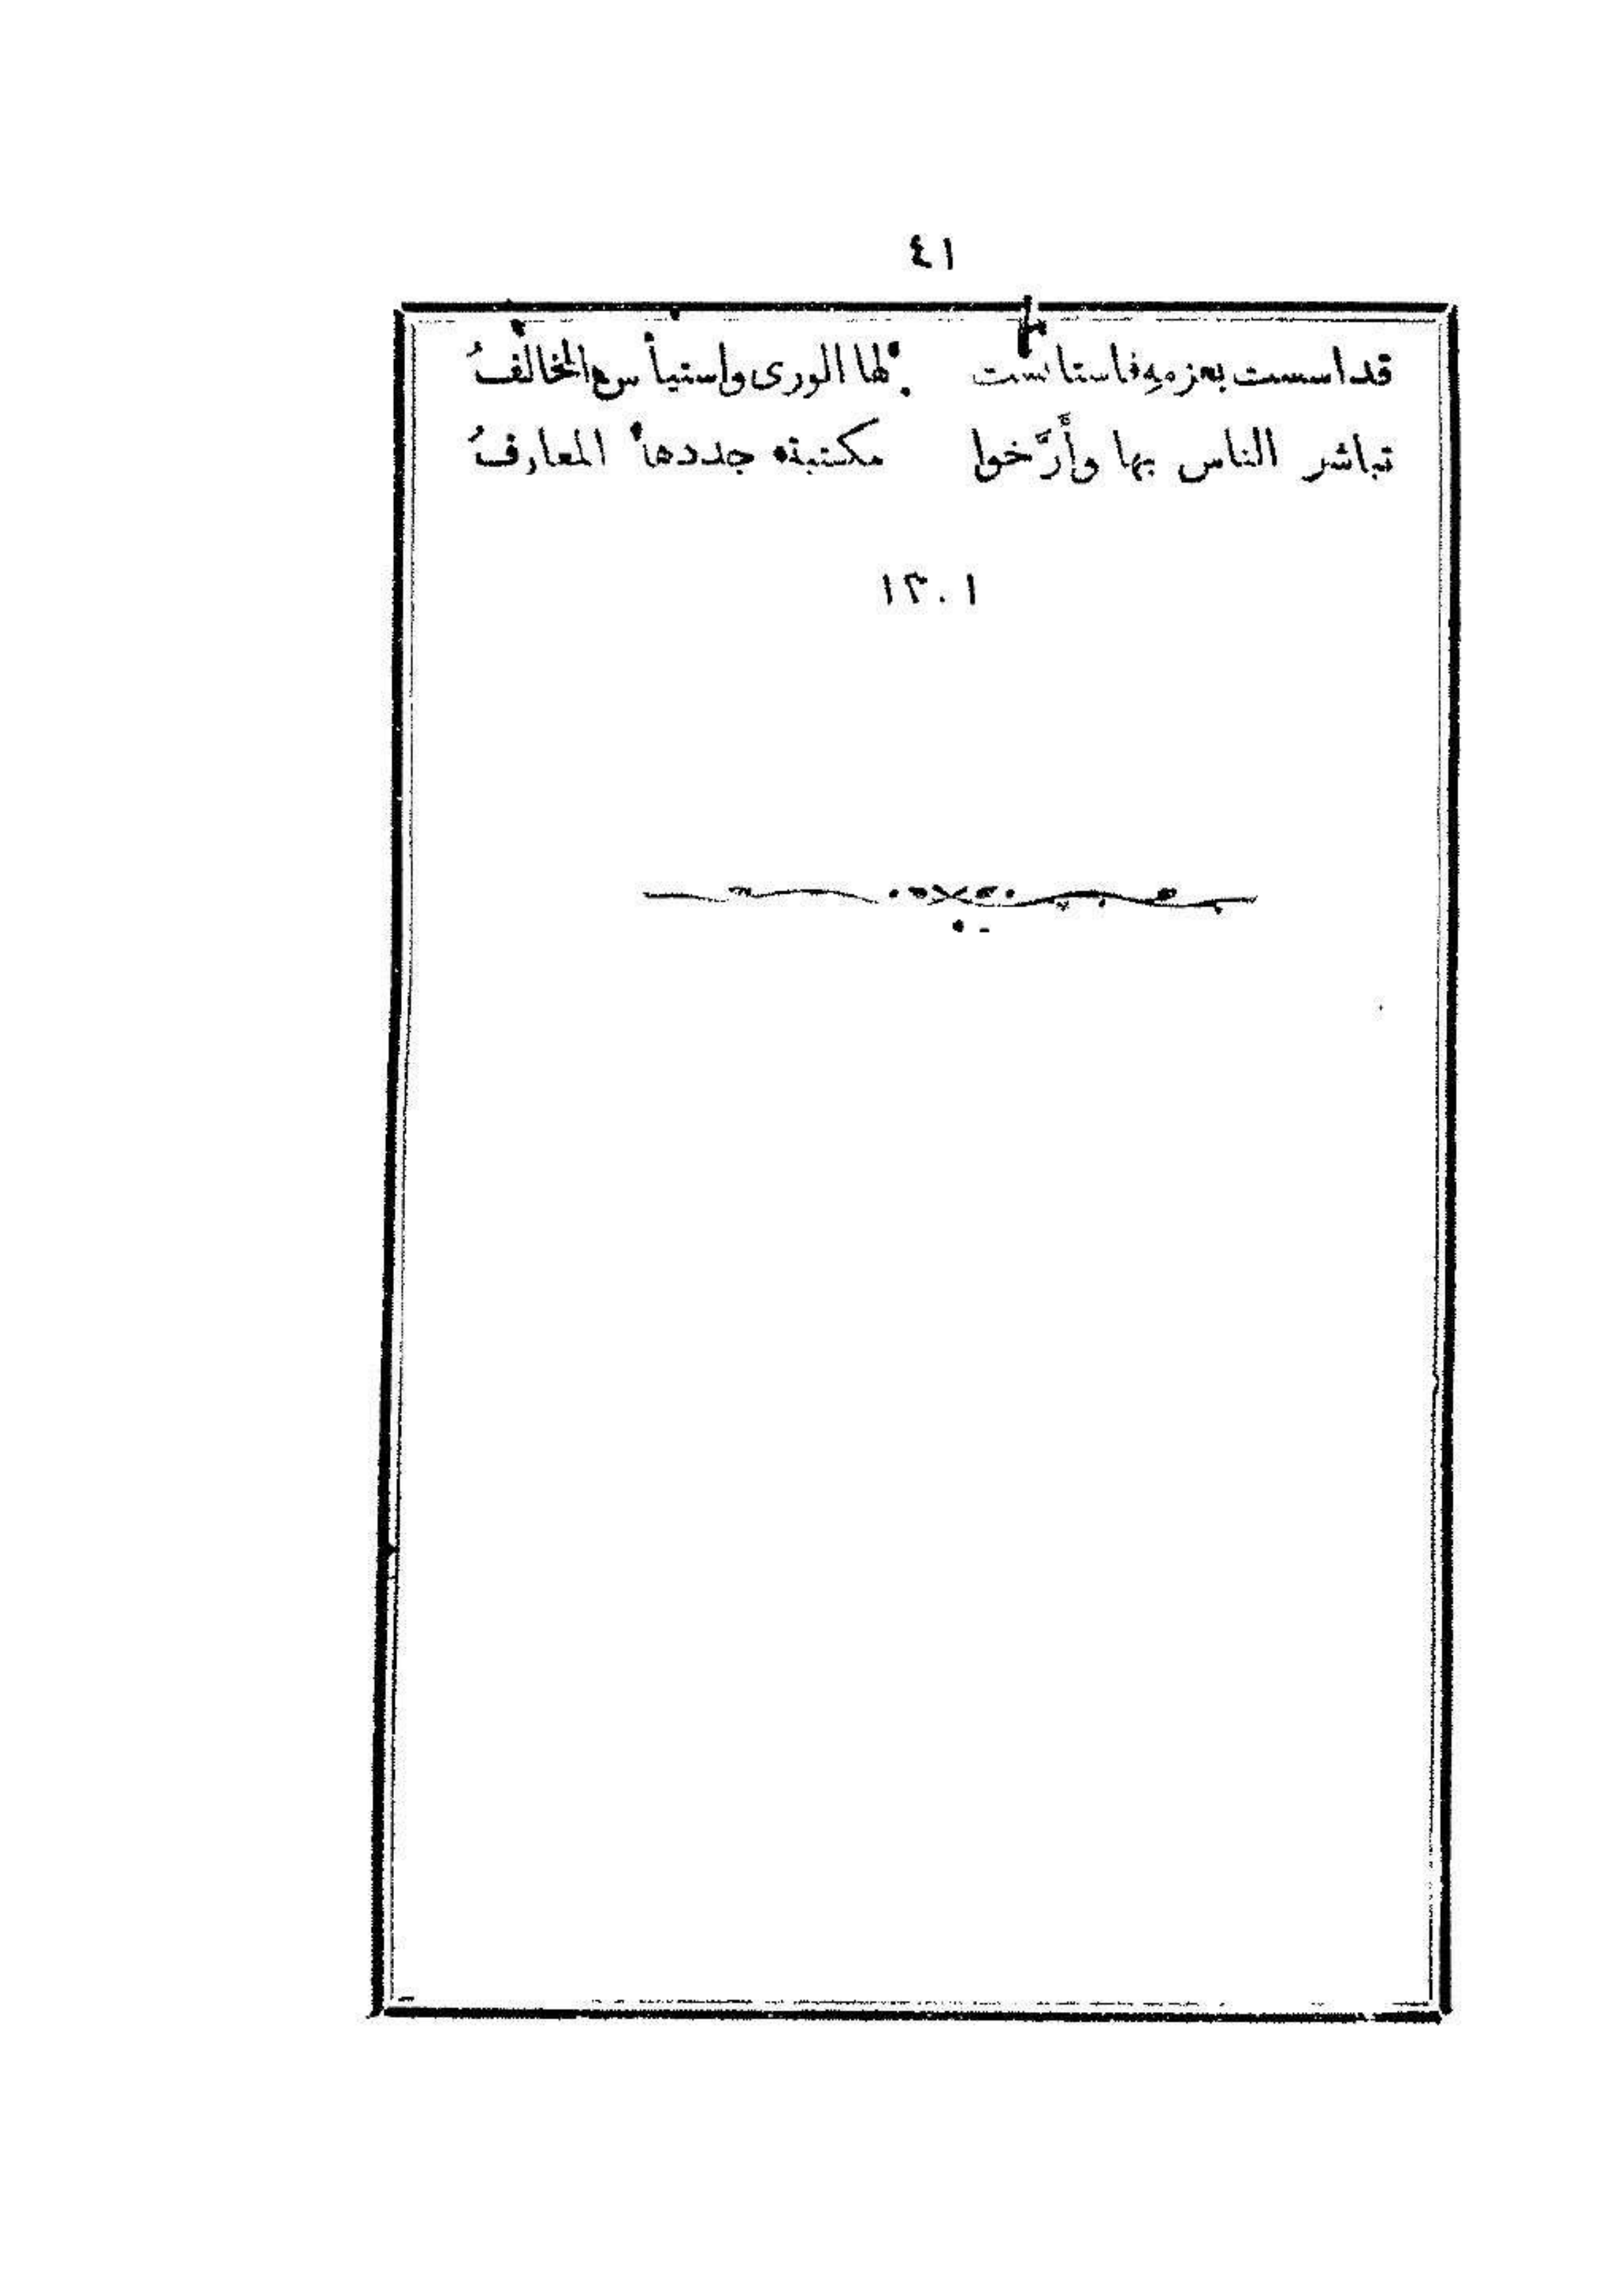 ٤١
قد اسست بعزمهِ فاستانست لها الورى واستيأس المخالفُ
تباشر الناس بها وأَرَّخوا مكتبة جددها المعارفُ
١٣٠١